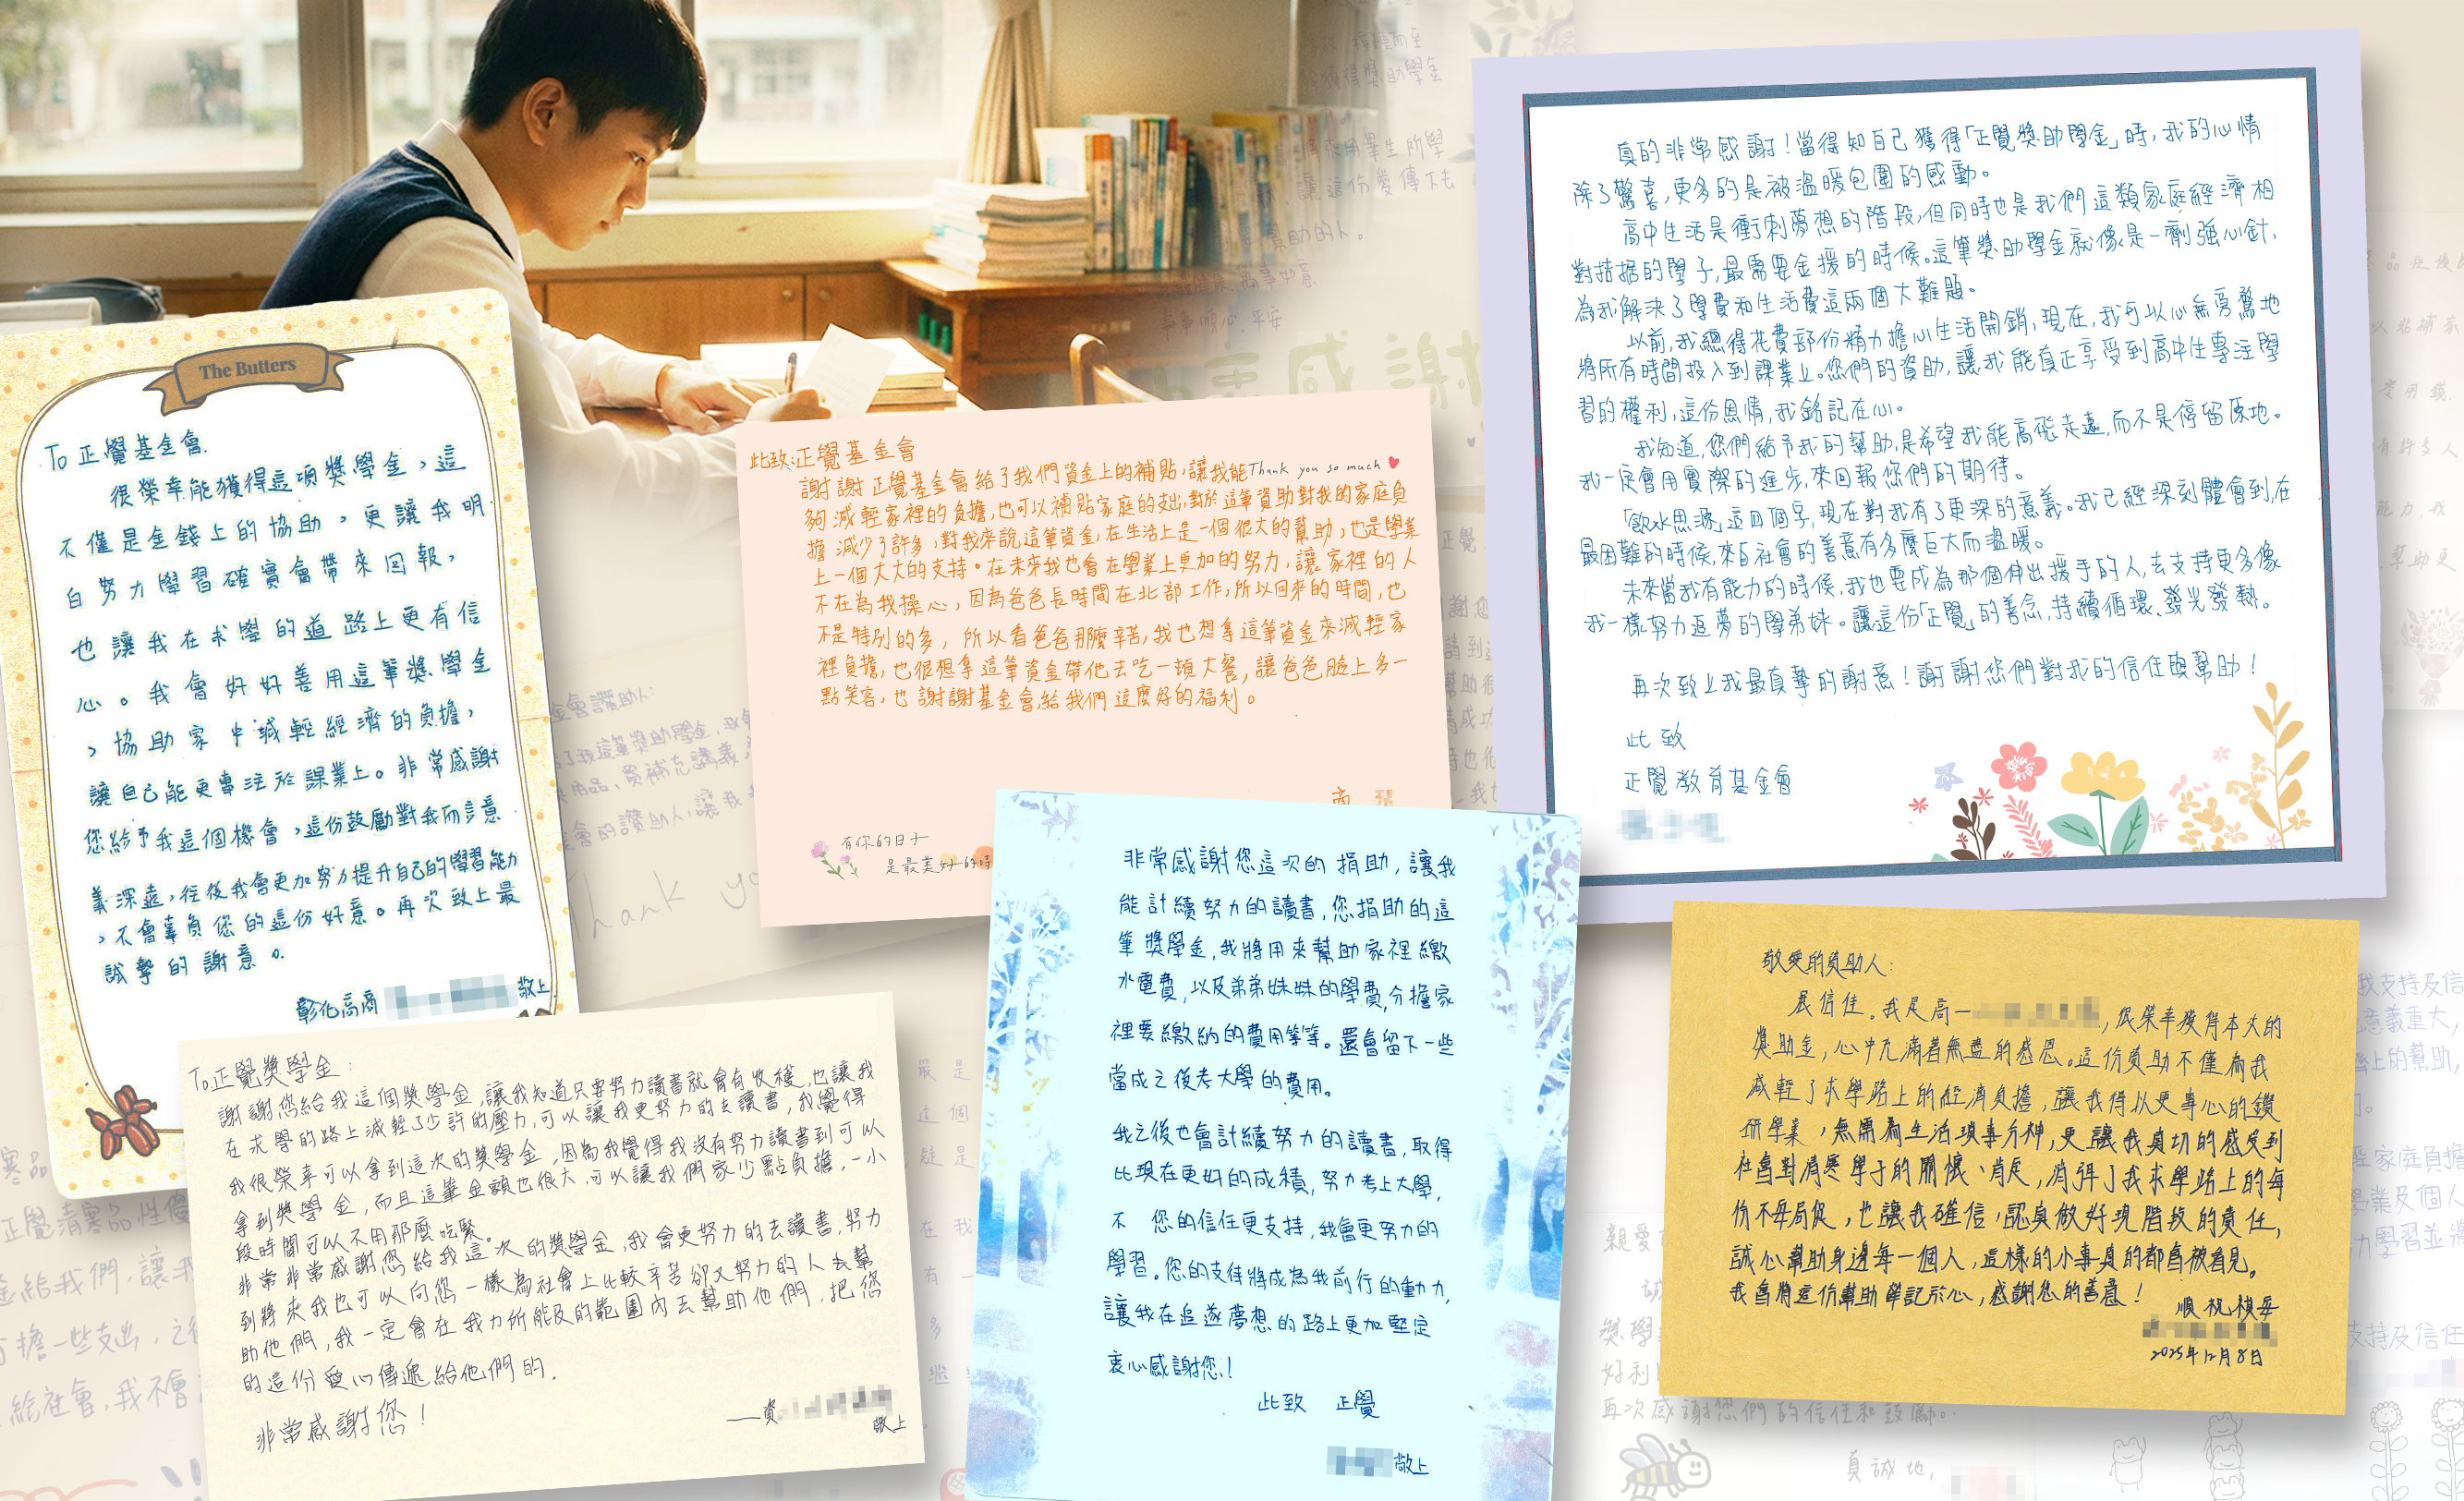 The Butters
To 正覺基金會.
很榮幸能獲得這項獎學金，這
不僅是金錢上的協助，更讓我明
白努力學習確實會帶來回報，
也讓我在求學的道路上更有信
心。我會好好善用這筆獎學金
，協助家中減輕經濟的負擔，
讓自己能更專注於課業上。非常感謝
您給予我這個機會，這份鼓勵對我而言意
義深遠，往後我會更加努力提升自己的學習能力
，不會辜負您的這份好意。再次致上最
誠摯的謝意。
彰化高商 敬上
此致:正覺基金會
謝謝正覺基金會給了我們資金上的補貼，讓我能Thank you so much
夠減輕家裡的負擔，也可以補貼家庭的支出，對於這筆資助對我的家庭負
擔減少了許多，對我來說這筆資金，在生活上是一個很大的幫助，也是學業
上一個大大的支持。在未來我也會在學業上更加的努力，讓家裡的人
不在為我操心，因為爸爸長時間在北部工作，所以回來的時間，也
不是特別的多，所以看爸爸那麼辛苦，我也想拿這筆資金來減輕家
裡負擔，也很想拿這筆資金帶他去吃一頓大餐，讓爸爸臉上多一
點笑容，也謝謝基金會給我們這麼好的福利。
商
有你的日子
是最美好的時
真的非常感謝！當得知自己獲得「正覺獎助學金」時，我的心情
除了驚喜，更多的是被溫暖包圍的感動。
高中生活是衝刺夢想的階段，但同時也是我們這類家庭經濟相
對拮据的學子，最需要金援的時候。這筆獎助學金就像是一劑強心針，
為我解決了學費和生活費這兩個大難題。
以前，我總得花費部份精力擔心生活開銷，現在，我可以心無旁騖地
將所有時間投入到課業上。您們的資助，讓我能真正享受到高中生專注學
習的權利，這份恩情，我銘記在心。
我知道，您們給予我的幫助，是希望我能高飛走遠，而不是停留原地。
我一定會用實際的進步，來回報您們的期待。
「飲水思源」這四個字，現在對我有了更深的意義。我已經深刻體會到，在
最困難的時候，來自社會的善意有多麼巨大而溫暖。
未來當我有能力的時候，我也要成為那個伸出援手的人，去支持更多像
我一樣努力追夢的學弟妹。讓這份「正覺」的善念，持續循環、發光發熱。
再次致上我最真摯的謝意！謝謝您們對我的信任與幫助！
此致
正覺教育基金會
To.正覺獎學金：
謝謝您給我這個獎學金，讓我知道只要努力讀書就會有收穫，也讓我
在求學的路上減輕了少許的壓力，可以讓我更努力的去讀書，我覺得
我很榮幸可以拿到這次的獎學金，因為我覺得我沒有努力讀書到可以
拿到獎學金，而且這筆金額也很大，可以讓我們家少點負擔，一小
段時間可以不用那麼吃緊。
非常非常感謝您給我這次的獎學金，我會更努力的去讀書，努力
到將來我也可以向您一樣為社會上比較辛苦卻又努力的人去幫
助他們，我一定會在我力所能及的範圍內去幫助他們，把您
的這份愛心傳遞給他們的.
非常感謝您！
—資
敬上
非常感謝您這次的捐助，讓我
能計續努力的讀書，您捐助的這
筆獎學金，我將用來幫助家裡繳
水電費，以及弟弟妹妹的學費，分擔家
裡要繳納的費用等等。還會留下一些
當成之後考大學的費用。
我之後也會計續努力的讀書，取得
比現在更好的成積，努力考上大學，
不 您的信任更支持，我會更努力的
學習。您的支待將成為我前行的動力，
讓我在追逐夢想的路上更加堅定
衷心感謝您！
此致 正覺
敬上
敬愛的資助人：
展信佳。我是高一，很榮幸獲得本次的
獎助金，心中充滿着無盡的感恩。這份資助不僅為我
減輕了求學路上的經濟負擔，讓我得以更專心的鑽
研學業，無需為生活瑣事分神，更讓我真切的感受到
社會對清寒學子的關懷、肯定，消弭了我求學路上的每
份不安侷促，也讓我確信，認真做好現階段的責任，
誠心幫助身邊每一個人，這樣的小事真的都會被看見。
我會將這份幫助牢記於心，感謝您的善意！
順祝
2025年12月8日
再次感謝您們的信任和鼓勵。
真誠地，